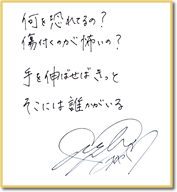 何を恐れてるの？
傷付くのが怖いの？
手を伸ばせばきっと
そこには誰かがいる